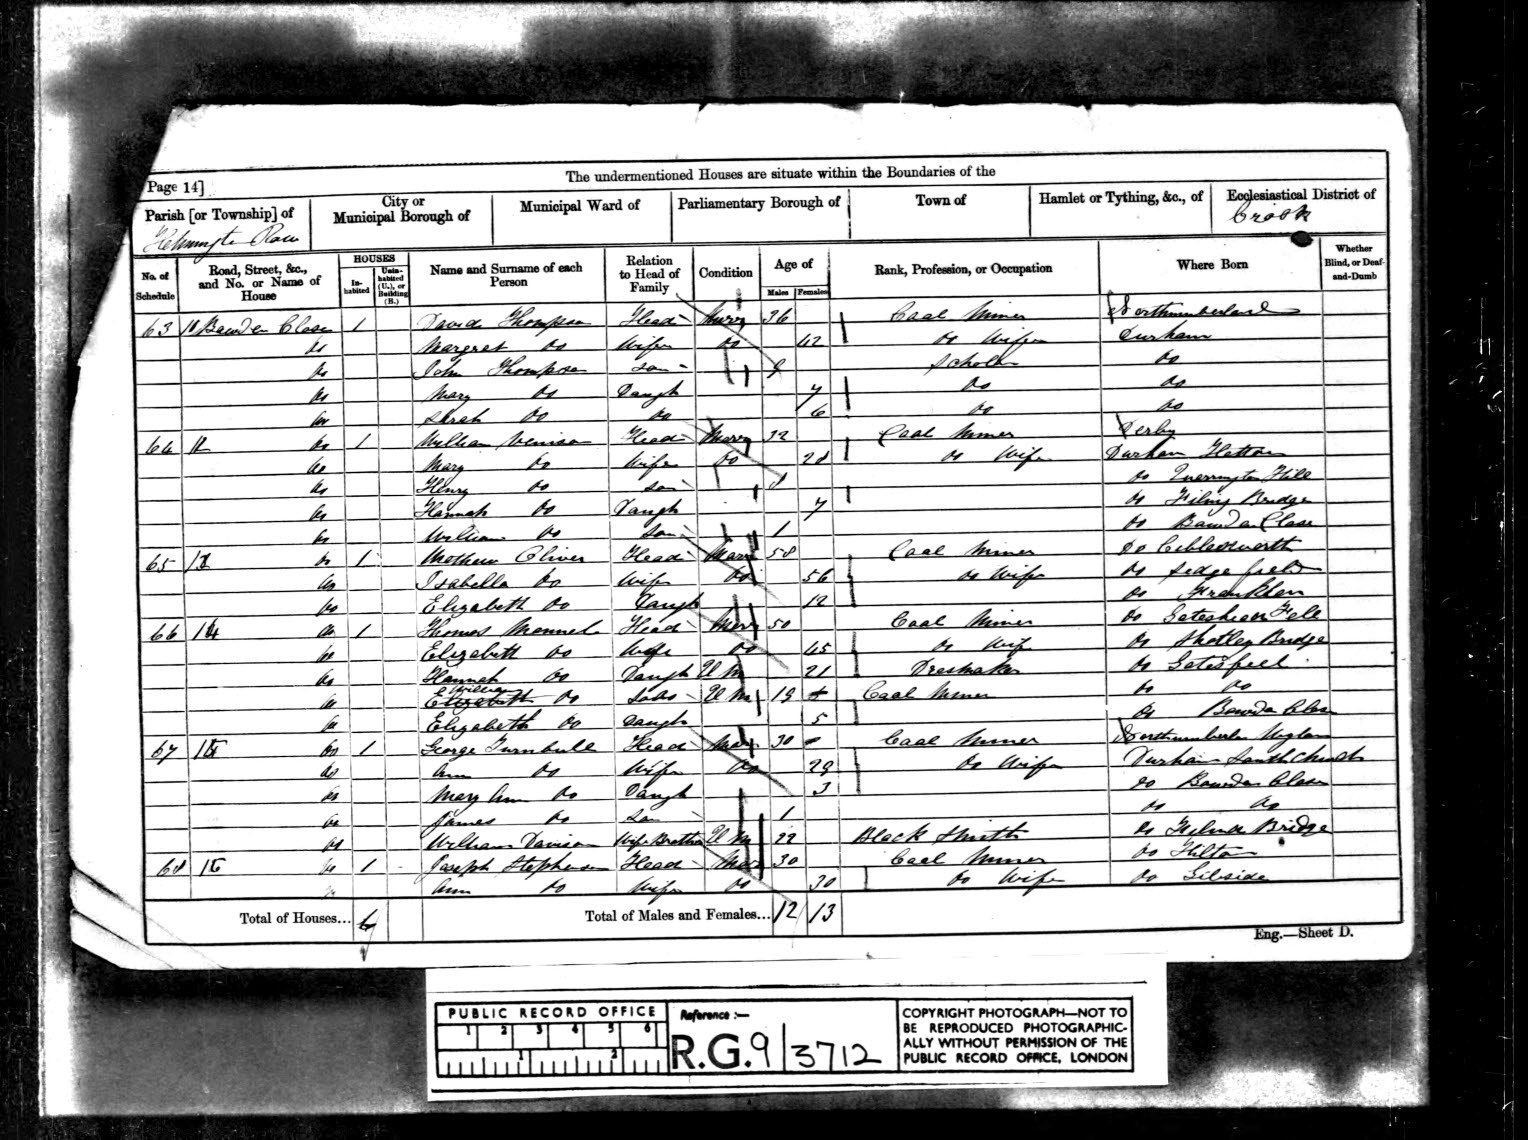 The undermentioned Houses are situate within the Boundaries of the
Page 14]
Parish [or Township] of
City or Municipal Borough of
Municipal Ward of
Parliamentary Borough of
Town of
Hamlet or Tything, &c., of
Ecclesiastical District of
Row
Crook
No. of Schedule
Road, Street, &c., and No. or Name of House
HOUSES
In-habited
Unin-habited (U.), or Building (B.)
Name and Surname of each Person
Relation to Head of Family
Condition
Age of
Males
Females
Rank, Profession, or Occupation
Where Born
Whether Blind, or Deaf-and-Dumb
63 10 Bowden Close 1 David Thompson Head Marr 36 Coal Miner Northumberland
Do Margret Do Wife Do 42 Do Wife Durham
Do John Thompson son 9 Scholar Do
Do Mary Do Daugh 7 Do Do
Do Sarah Do Do 6 Do Do
64 Do 1 William Head Marr 32 Coal Miner Derby
Do Mary Do Wife Do 28 Do Wife Durham Hetton
Do Henry Do son Do Hill
Do Hannah Do Daugh 7 Do Bridge
Do William Do Son 1 Do Bowden Close
65 Do 1 Mathew Oliver Head Marr 58 Coal Miner Do
Do Isabella Do Wife Do 56 Do Wife Do Sedgefield
Do Elizabeth Do Daugh 12 Do
66 14 Do 1 Thomas Head Marr 50 Coal Miner Do Gateshead Fell
Do Elizabeth Do Wife Do 45 Do Wife Do Shotley Bridge
Do Hannah Do Daugh U M 21 Dresmaker Do
William
Do Do U M 19 Coal Miner Do Do
Do Elizabeth Do Daugh 5 Do Bowden Close
67 Do 1 George Turnbull Head Marr 30 Coal Miner
Do Ann Do Wife Do 29 Do Wife Durham South Church
Do Mary Ann Do Daugh 3 Do Bowden Close
Do James Do Son 1 Do Do
Do William Davison Wifes Brother U M 22 Black Smith Do Bridge
68 Do 1 Joseph Stephenson Head Marr 30 Coal Miner Do
Ann Do Wife Do 30 Do Wife Do Gibside
Total of Houses... 6
Total of Males and Females... 12 13
Eng.—Sheet D.
PUBLIC RECORD OFFICE
1 2 3 4 5 6
1 2
Reference :—
R.G. 9/3712
COPYRIGHT PHOTOGRAPH—NOT TO
BE REPRODUCED PHOTOGRAPHIC-
ALLY WITHOUT PERMISSION OF THE
PUBLIC RECORD OFFICE, LONDON